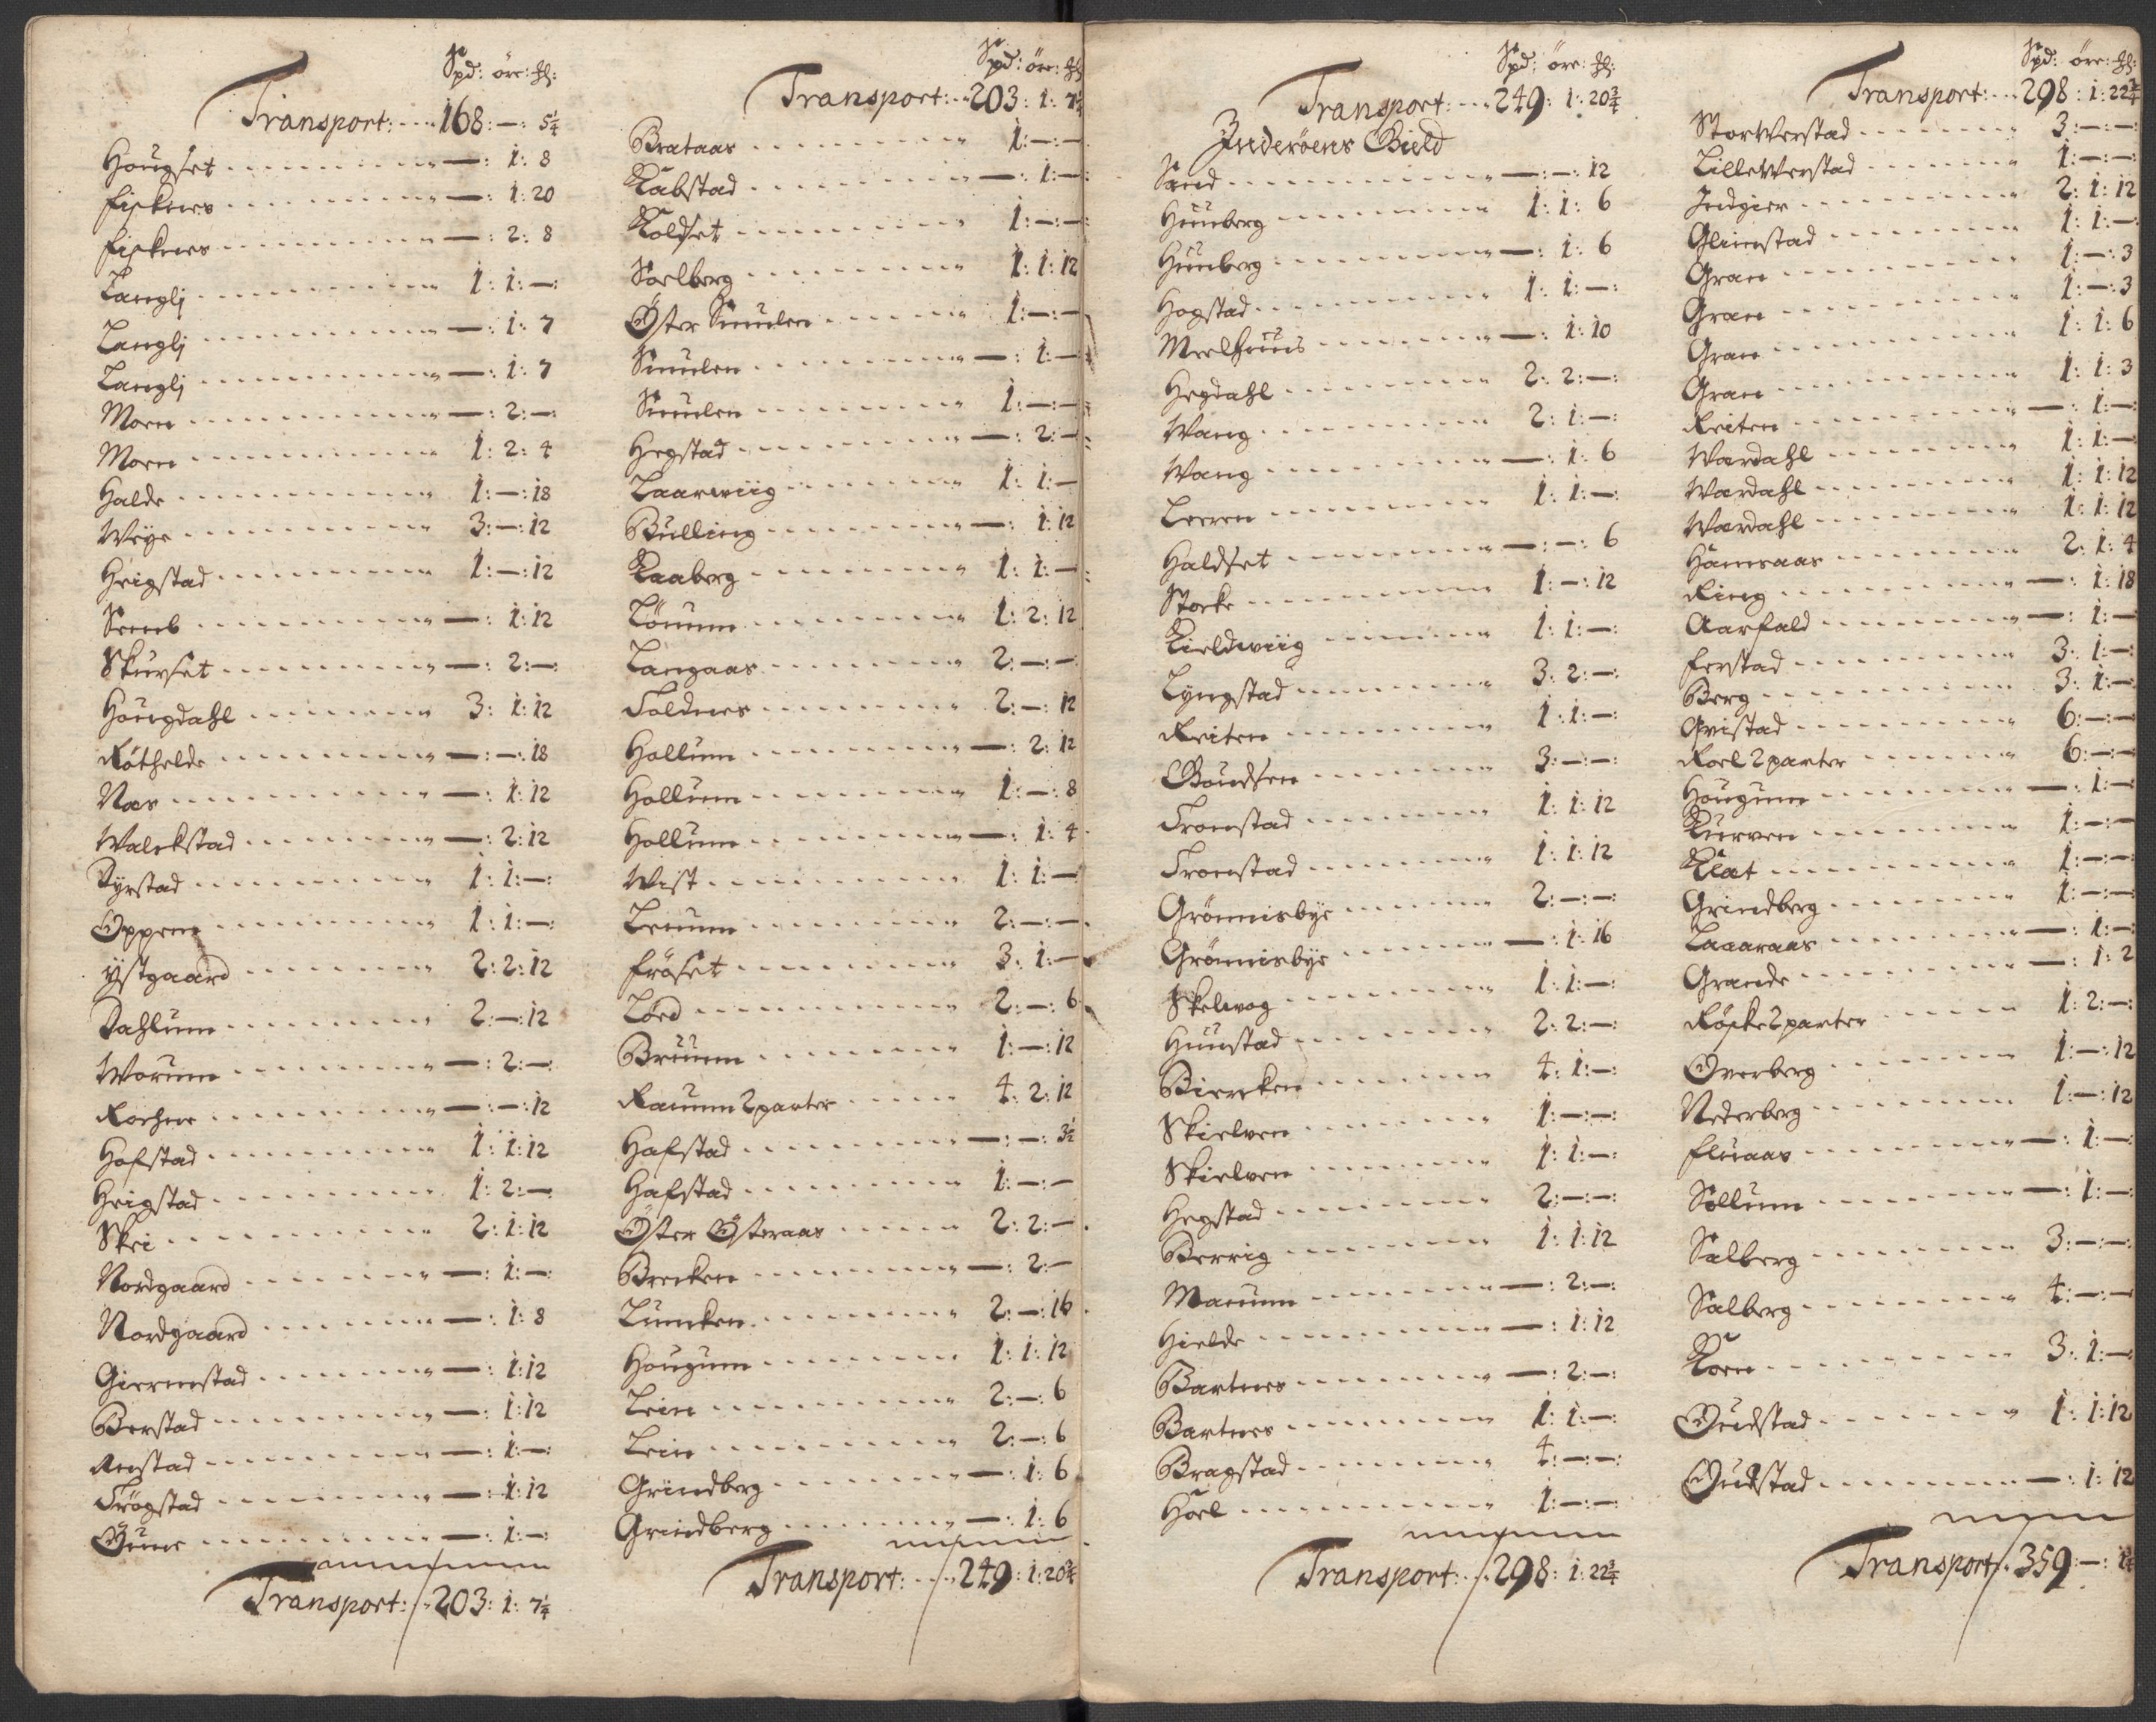 Spd: öre: ꝑl:
Transport: 168: —: 5¼
Hougset —: 1: 8
Fisknes —: 1: 20
Fisknes —: 2: 8
Langlj 1: 1: —:
Langlj —: 1: 7
Langlj —: 1: 7
Moen —: 2: —:
Moen 1: 2: 4
Halde 1: —: 18
Weye 3: —: 12
Heigstad 1: —: 12
Semb —: 1: 12
Skurset —: 2: —:
Hougdahl 3: 1: 12
Röthelde —: —: 18
Nas —: 1: 12
Walekstad —: 2: 12
Dyrstad 1: 1: —:
Oppem 1: 1: —:
ystgaard 2: 2: 12
Dahlum 2: —: 12
Worum —: 2: —:
—: —: 12
Hafstad 1: 1: 12
Heigstad 1: 2: —:
Skei 2: 1: 12
Nordgaard —: 1: —:
Nordgaard —: 1: 8
Giermstad —: 1: 12
Berstad —: 1: 12
Restad —: 1: —:
Trögstad —: 1: 12
Gune —: 1: —:
Transport: 203: 1: 7¼

Spd: öre: ꝑl
Transport: 203: 1: 7¼
Brataas 1: —: —
Kabstad —: 1: —:
Koldset 1: —: —:
Soelberg 1: 1: 12
Öster Smulen 1: —: —
Smulen —: 1: —
Smulen 1: —: —
Hegstad —: 2: —
Laarwiig 1: 1: —
Bulling —: 1: 12
Kaaberg 1: 1: —:
Löuum 1: 2: 12
Langaas 2: —: —
Foldnes 2: —: 12
Hollum —: 2: 12
Hollum 1: —: 8
Hollum —: 1: 4
Wist 1: 1: —
Leuum 2: —: —
Fröset 3: 1: —
Loed 2: —: 6
Bruum 1: —: 12
Rauum 2 parter 4: 2: 12
Hafstad —: —: 3½
Hafstad 1: —: —
Öster Österaas 2: 2: —
Brecken —: 2: —
Luncken 2: —: 16
Hougum 1: 1: 12
Lein 2: —: 6
Lein 2: —: 6
Grindberg —: 1: 6
Grindberg —: 1: 6
Transport: 249: 1: 20¾

Spd: öre: ꝑl:
Transport: 249: 1: 20¾
Inderöens Gield
Sand —: —: 12
Huuberg 1: 1: 6
Huuberg —: 1: 6
Hogstad 1: 1: —:
Meelhuus —: 1: 10
Hegdahl 2: 2: —:
Wang 2: 1: —:
Wang —: 1: 6
Leeren 1: 1: —:
Haldset —: —: 6
Storke 1: —: 12
Kieldwiig 1: 1: —:
Lyngstad 3: 2: —:
Reiten 1: 1: —:
Goudsen 3: —: —:
Tronstad 1: 1: 12
Tronstad 1: 1: 12
Grönnisbye 2: —: —:
Grönnisbye —: 1: 16
Skelwog 1: 1: —:
Huustad 2: 2: —:
Biercken 4: 1: —:
Skielven 1: —: —:
Skielven 1: 1: —:
Hegstad 2: —: —:
Berrig 1: 1: 12
Mæuum —: 2: —:
Hielde —: 1: 12
Bartnes —: 2: —:
Bartnes 1: 1: —:
Bragstad 4: —: —:
Hoel 1: —: —:
Transport: 298: 1: 22¾

Spd: öre: ꝑl:
Transport: 298: 1: 22¾
StorWerstad 3: —: —:
LilleWerstad 1: —: —:
Indgier 2: 1: 12
Glimstad 1: 1: —:
Gran 1: —: 3
Gran 1: —: 3
Gran 1: 1: 6
Gran 1: 1: 3
Reiten —: 1: —:
Wardahl 1: 1: —
Wardahl 1: 1: 12
Wardahl 1: 1: 12
Hamraas 2: 1: 4
Ring —: 1: 18
Aarfald —: 1: —
Ferstad 3: 1: —:
Berg 3: 1: —
Qvistad 6: —: —
Roel 2 parter 6: —: —
Hougum —: 1: —
Kurven 1: —: —
Klæt 1: —: —:
Grindberg 1: —: —:
Laaaraas —: 1: —
Grande —: 1: 2
Röske 2 parter 1: 2: —:
Overberg 1: —: 12
Nederberg 1: —: 12
Fluaas —: 1: —:
Sollum —: 1: —:
Salberg 3: —: —:
Salberg 4: —: —
Koen 3: 1: —:
Gudstad 1: 1: 12
Gudstad —: 1: 12
Transport 359: —: